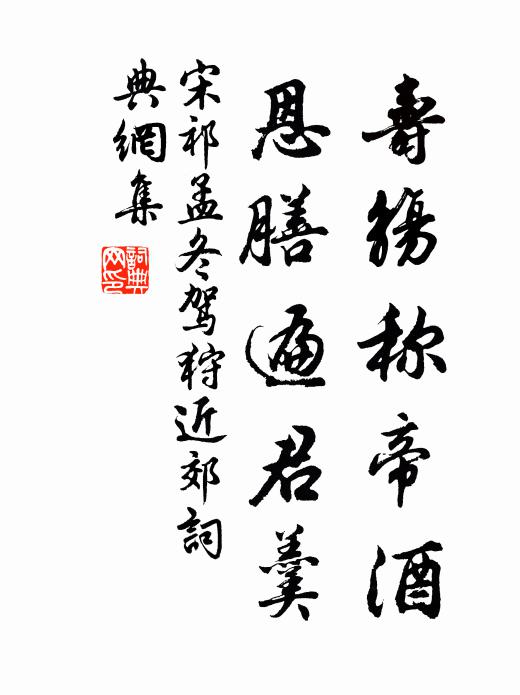 壽觴称帝酒
恩膳遍君羹
宋祁孟冬駕狩近郊詞
典網集
詞典
网印